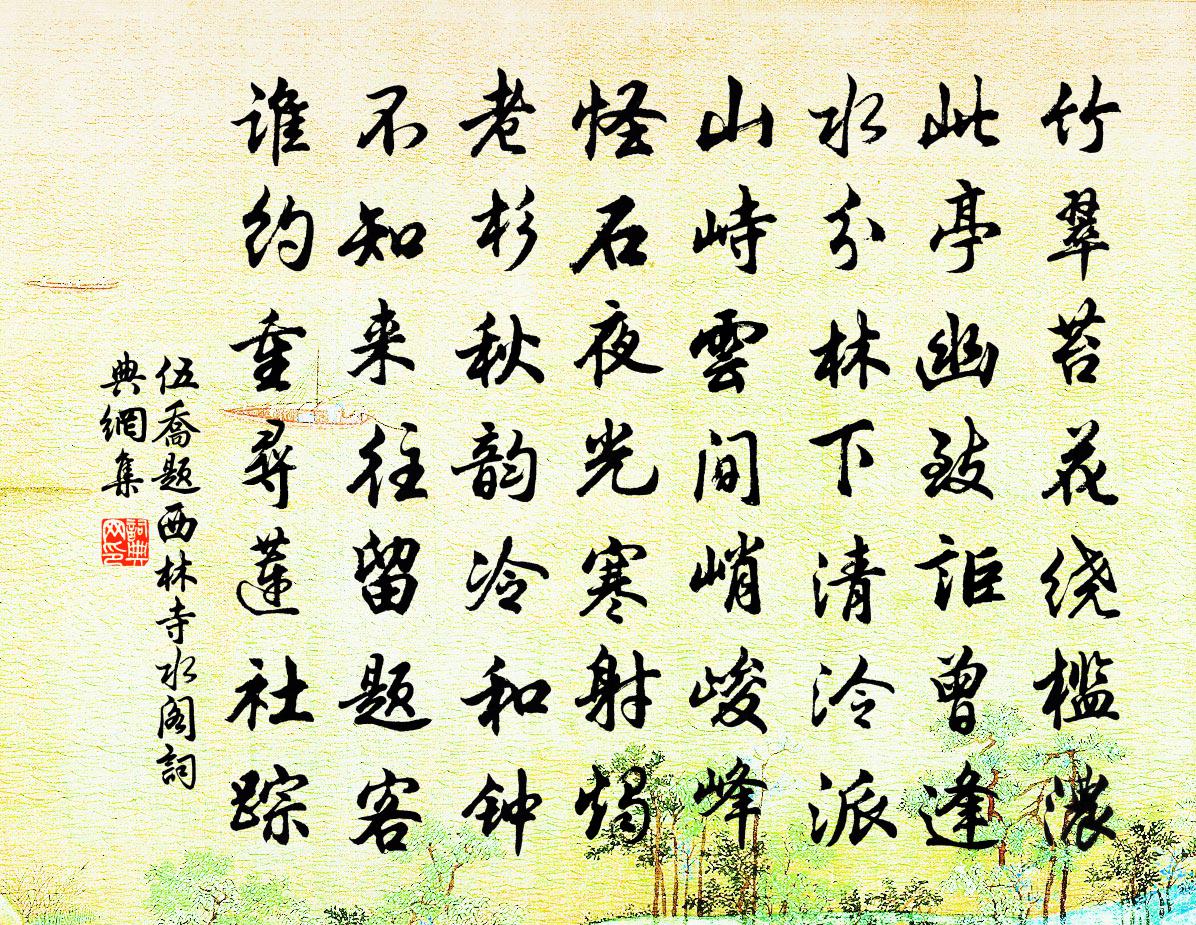 竹翠苔花绕槛濃
此亭幽致詎曾逢
水分林下清泠派
山峙雲間峭峻峰
怪石夜光寒射燭
老杉秋韵冷和钟
不知来往留题客
谁约重尋蓮社踪
伍喬题西林寺水阁詞
典網集
詞典
网印